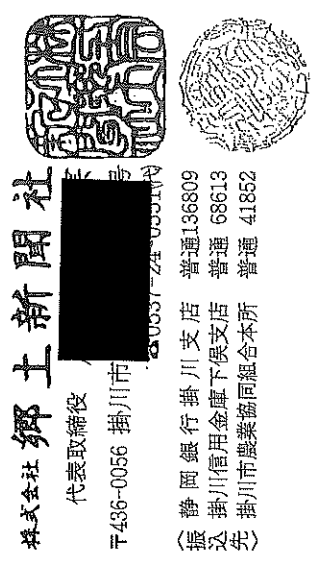 株式会社 郷土新聞社
代表取締役
〒436-0056 掛川市 号
☎0537-24-0331(代
〈振込先〉
静岡銀行掛川支店 普通136809
掛川信用金庫下俣支店 普通 68613
掛川市農業協同組合本所 普通 41852